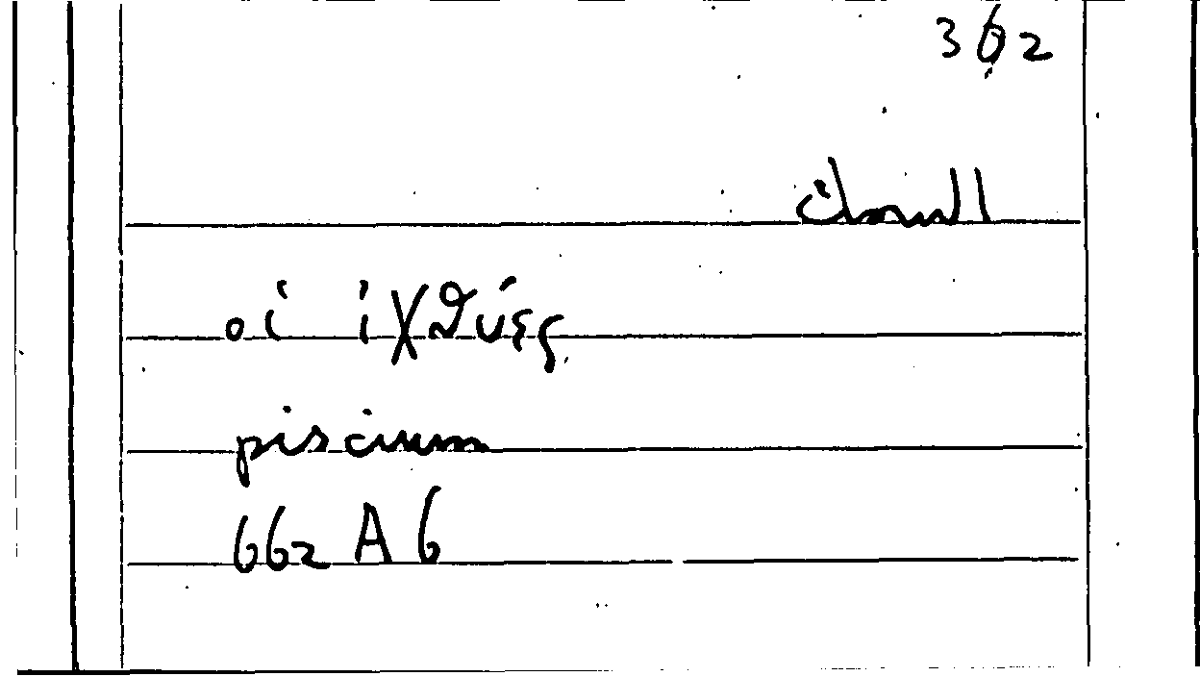 362
السمك
οἱ ἰχθύες
piscium
662 A 6